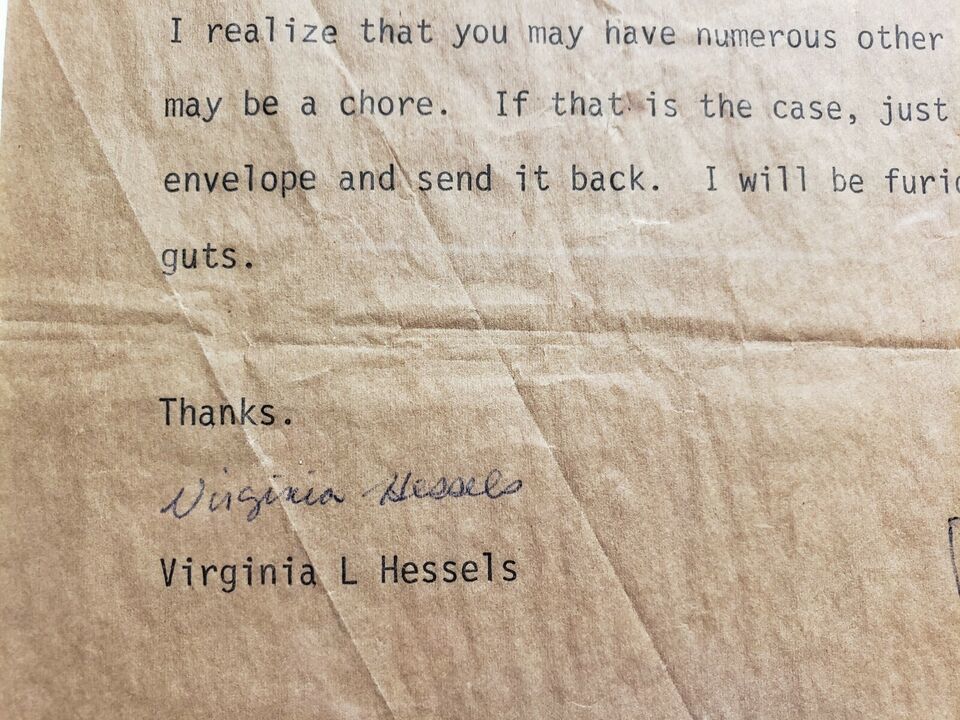 I realize that you may have numerous other
may be a chore. If that is the case, just
envelope and send it back. I will be
guts.
Thanks.
Virginia Hessels
Virginia L Hessels